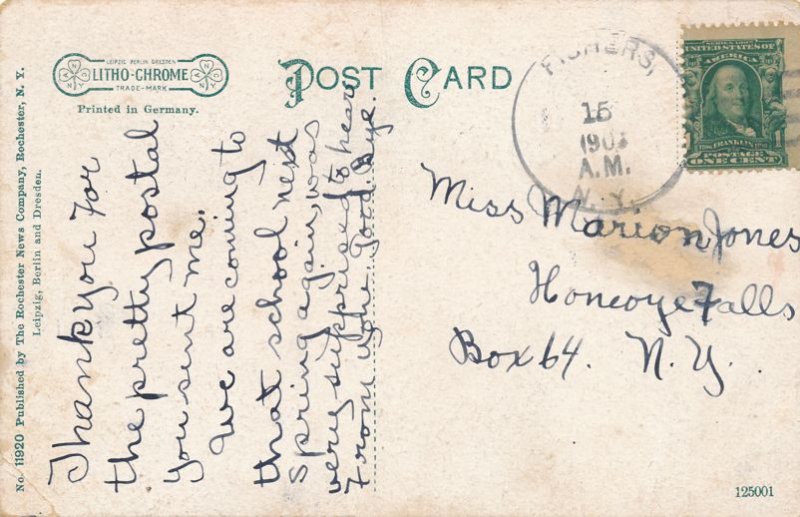 LEIPZIG BERLIN DRESDEN
LITHO-CHROME
TRADE-MARK
Printed in Germany.
POST CARD
No. 11920 Published by The Rochester News Company, Rochester, N. Y.
Leipzig, Berlin and Dresden.
FISHERS,
15
190
A.M.
N.Y.
SERIES 1902
UNITED STATES OF
AMERICA
FRANKLIN
POSTAGE
ONE CENT
Thank you for
the pretty postal
you sent me.
We are coming to
that school next
spring again, was
very supprised to hear
from you. Good Bye.
Miss Marion Jones
Honeoye Falls
Box 64. N. Y.
125001